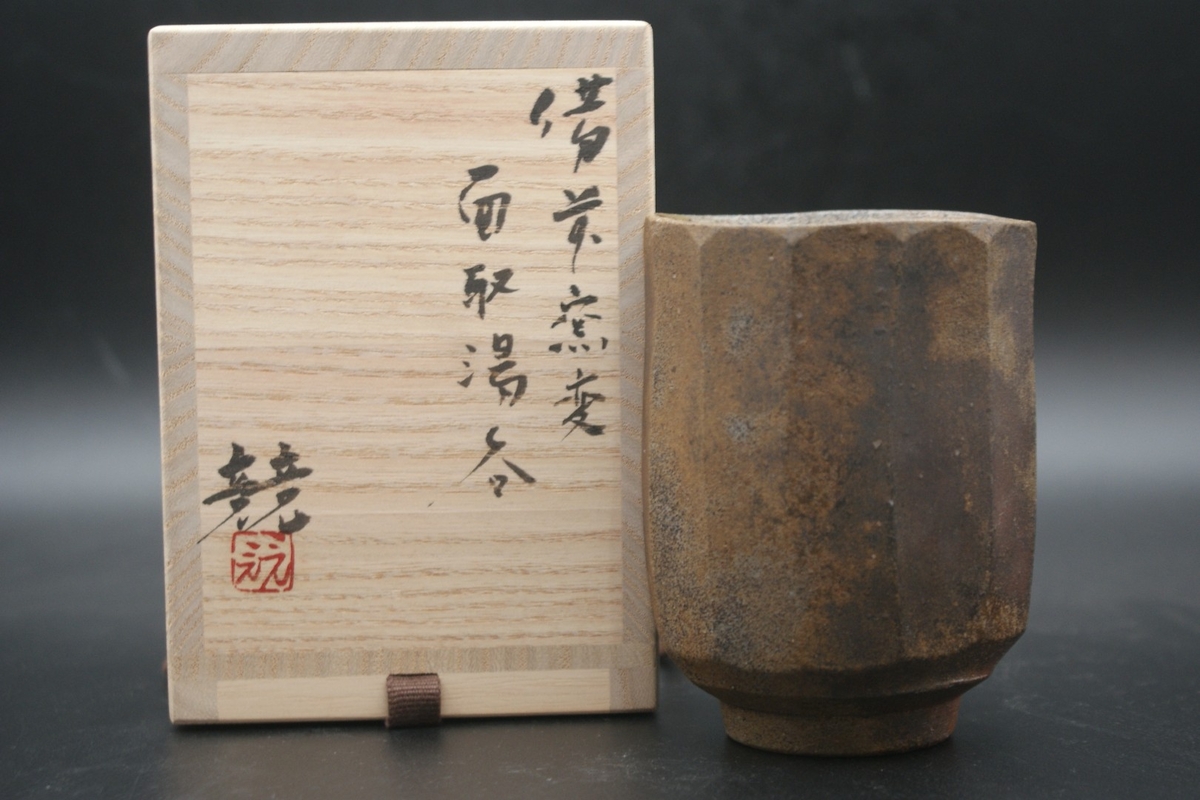 備前窯変
面取湯呑
競